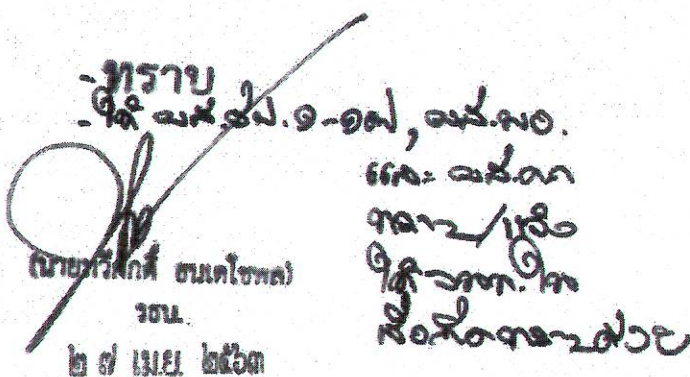 - ทราบ
- ให้ ผส.ชป.๑-๑๗, ผส.พอ.
และ
ทราบ/แจ้ง
ให้ จนท.ใน
สังกัดทราบด้วย
(นายทวีศักดิ์ ธนเดโชพล)
รธน.
๒ ๗ เม.ย. ๒๕๖๓